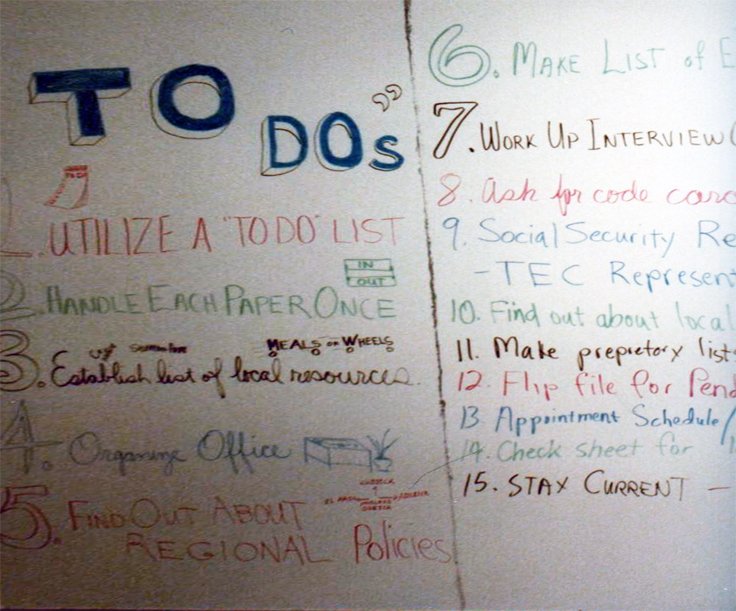 TO DOs
1. UTILIZE A "TO DO" LIST
IN
OUT
2. HANDLE EACH PAPER ONCE
MEALS on WHEELS
3. Establish list of local resources.
4. Organize Office
5. FIND OUT ABOUT
REGIONAL Policies
6. MAKE LIST of E
7. WORK UP INTERVIEW
8. ask for code card
9. Social Security Re
- TEC Represent
10. Find out about local
11. Make prepretory list
12. Flip file for Pend
13 Appointment Schedule/
14. Check sheet for
15. STAY CURRENT -